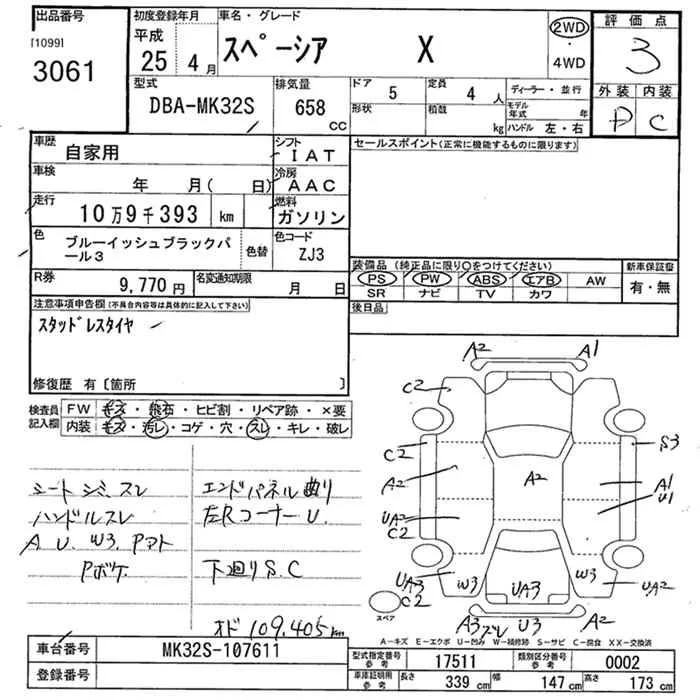 出品番号
[1099]
3061
初度登録年月
平成
25年 4月
車名・グレード
スペーシア X
2WD
・
4WD
評価点
3
外装 内装
D C
型式
DBA-MK32S
排気量
658 CC
ドア 5
形状
定員 4 人
積載 kg
ディーラー・並行
モデル年式 年
ハンドル 左・右
車歴 自家用
シフト IAT
車検 年 月( 日)
冷房 AAC
走行 10万9千393 km
燃料 ガソリン
色 ブルーイッシュブラックパール3
色替
色コード ZJ3
R券 9,770円
名変通知期限 月 日
セールスポイント(正常に機能するものに限ります)
装備品(純正品に限り○をつけてください)
PS PW ABS エアB AW
SR ナビ TV カワ
新車保証書
有・無
後日品
注意事項申告欄(不具合内容等は具体的に記入して下さい)
スタッドレスタイヤ
修復歴 有〔箇所 〕
検査員記入欄
FW キズ・飛石・ヒビ割・リペア跡・×要
内装 キズ・汚レ・コゲ・穴・スレ・キレ・破レ
シートシミ、スレ
ハンドルスレ
A U. W3. Pマト
Pボケ
エンドパネル曲り
左Rコーナー U.
下廻りS.C
オド 109.405km
A2 A1
C2
C2 S3
A2 A2 A1
U1
UA2
C2
UA3 W3 UA3 W3 UA2
C2
スペア
A3 スレ U3 A2
A-キズ E-エクボ U-凹み W-補修跡 S-サビ C-腐食 XX-交換済
車台番号 MK32S-107611
登録番号
型式指定番号 参考 17511
類別区分番号 参考 0002
車庫証明用 参考 長さ 339 cm 幅 147 cm 高さ 173 cm